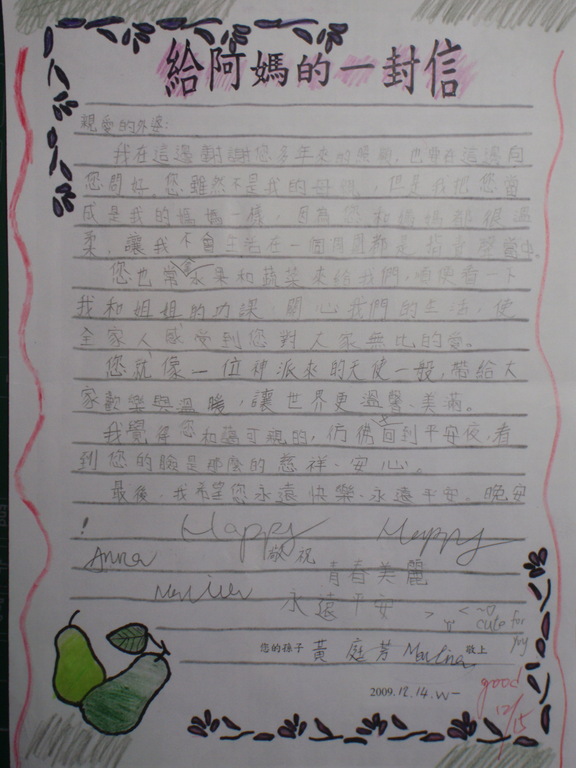 給阿媽的一封信
親愛的外婆:
我在這邊謝謝您多年來的照顧,也要在這邊向
您問好。您雖然不是我的母親,但是我把您當
成是我的媽媽一樣,因為您和媽媽都很溫
柔,讓我不會生活在一個周圍都是
您也常拿水果和蔬菜來給我們,順便看一下
我和姐姐的功課,關心我們的生活,使
全家人感受到您對人家無比的愛。
您就像一位神派來的天使一般,帶給大
家歡樂與溫暖,讓世界更溫馨、美滿。
我覺得您和藹可親的,彷彿回到平安夜,看
到您的臉是那麼的慈祥、安心。
最後,我希望您永遠快樂、永遠平安。晚安
!
Happy Happy
Anna 敬祝
青春美麗
永遠平安
cute for
您的孫子 黃庭芳 敬上
2009.12.14.W一
good
12/15